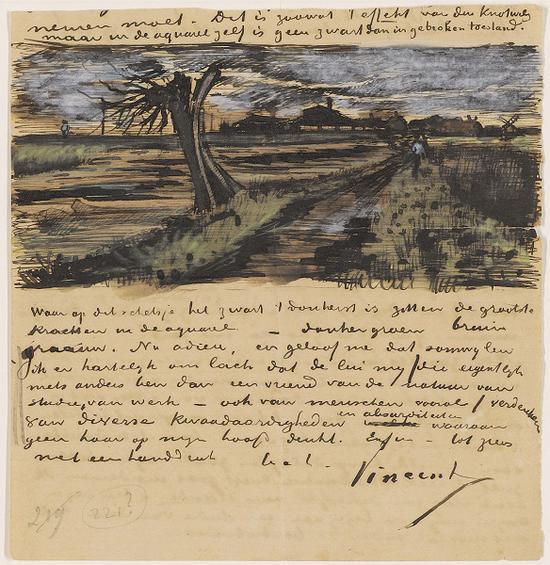 nemen moet. Dit is zoowat 't effekt van den Knotwilg
maar in de aquarel zelf is geen zwart dan in gebroken toestand.
Waar op dit schetsje het zwart 't donkerst is zitten de grootste
Krachten in de aquarel — donkergroen bruin
graauw. Nu adieu, en geloof me dat somwylen
ik er hartelyk om lach dat de lui my /die eigentlyk
niets anders ben dan een vriend van de natuur van
studie, van werk — ook van menschen vooral / verdenken
van diverse Kwaadaardigheden en absurditeiten waaraan
geen haar op myn hoofd denkt. Enfin — tot ziens
met een handdruk
Vincent
221?